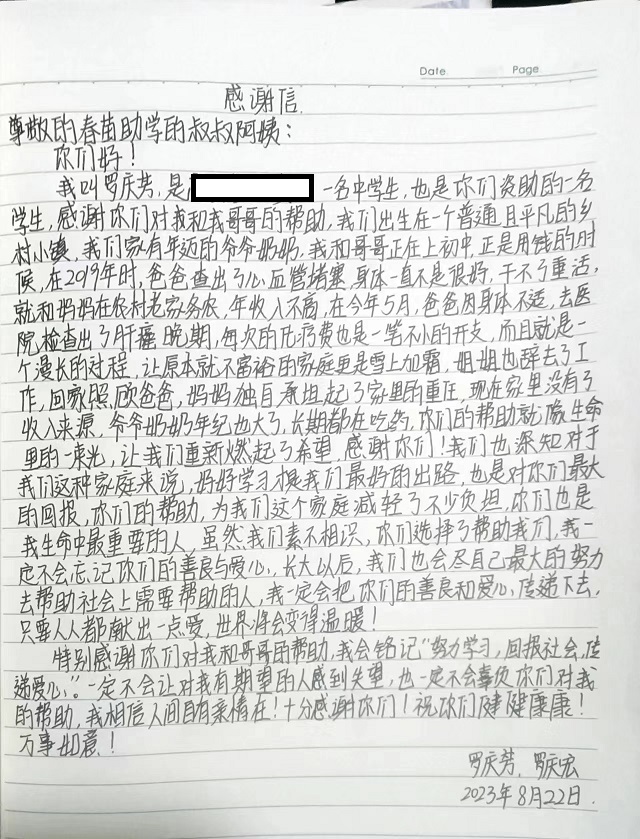 Date Page
感谢信
尊敬的春苗助学的叔叔阿姨：
你们好！
我叫罗庆芳，是 一名中学生，也是你们资助的一名
学生，感谢你们对我和我哥哥的帮助，我们出生在一个普通且平凡的乡
村小镇，我们家有年迈的爷爷奶奶，我和哥哥正在上初中，正是用钱的时
候，在2019年时，爸爸查出了心血管堵塞，身体一直不是很好，干不了重活，
就和妈妈在农村老家务农，年收入不高，在今年5月，爸爸因身体不适，去医
院检查出了肝癌晚期，每次的化疗费也是一笔不小的开支，而且就是一
个漫长的过程，让原本就不富裕的家庭更是雪上加霜，姐姐也辞去了工
作，回家照顾爸爸，妈妈独自承担起了家里的重任，现在家里没有了
收入来源，爷爷奶奶年纪也大了，长期都在吃药，你们的帮助就像生命
里的一束光，让我们重新燃起了希望，感谢你们！我们也深知对于
我们这种家庭来说，好好学习才是我们最好的出路，也是对你们最大
的回报，你们的帮助，为我们这个家庭减轻了不少负担，你们也是
我生命中最重要的人，虽然我们素不相识，你们选择了帮助我们，我一
定不会忘记你们的善良与爱心，长大以后，我们也会尽自己最大的努力
去帮助社会上需要帮助的人，我一定会把你们的善良和爱心传递下去，
只要人人都献出一点爱，世界将会变得温暖！
特别感谢你们对我和哥哥的帮助，我会铭记“努力学习，回报社会，传
递爱心”。一定不会让对我有期望的人感到失望，也一定不会辜负你们对我
的帮助，我相信人间自有亲情在！十分感谢你们！祝你们健健康康！
万事如意！
罗庆芳、罗庆宏
2023年8月22日.